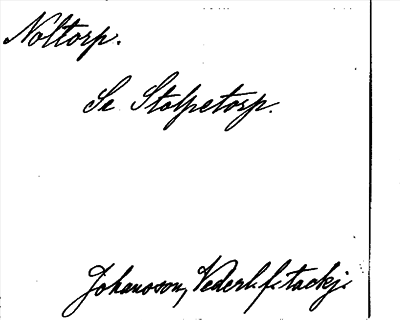 Noltorp.
Se Stolpetorp.
Johansson, Vederl. f. tackj.